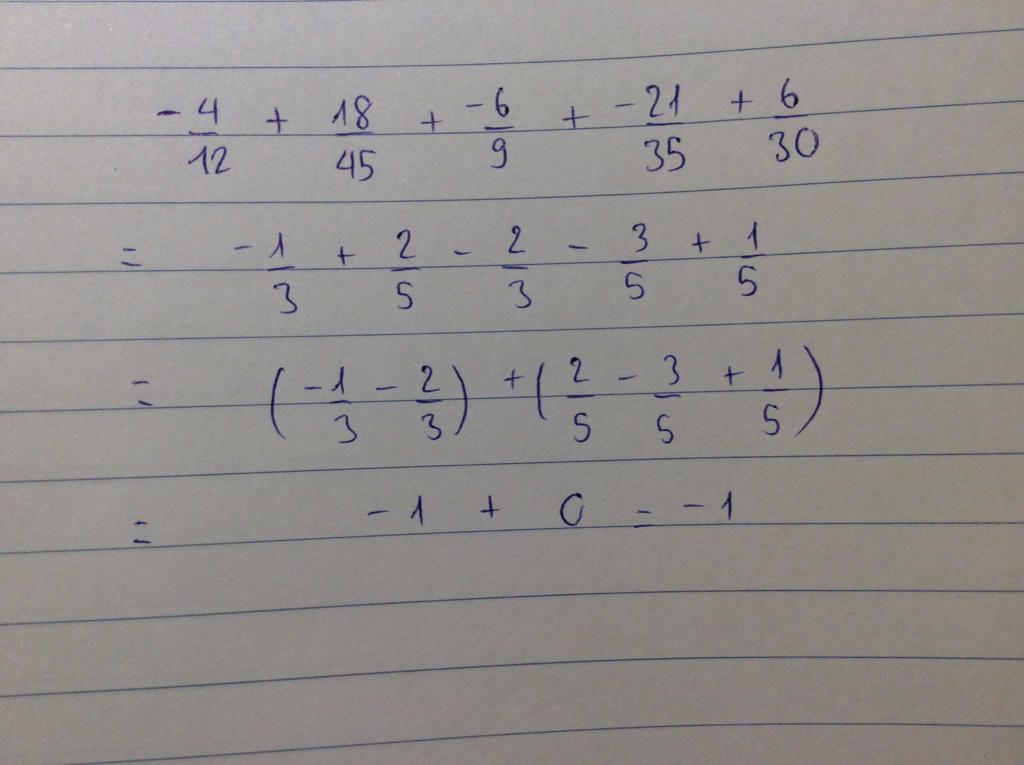 -4/12 + 18/45 + -6/9 + -21/35 + 6/30
= -1/3 + 2/5 - 2/3 - 3/5 + 1/5
= (-1/3 - 2/3) + (2/5 - 3/5 + 1/5)
= -1 + 0 = -1